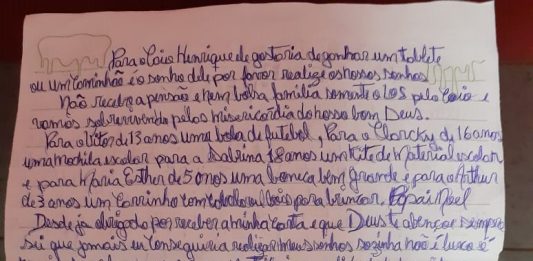 Para o Caio Henrique de gostaria de ganhar um tablete
ou um caminhão é o sonho dele por favor realize os nossos sonhos
Não recebo a pensão e nem bolsa família somente o LOS pelo Caio e
vamos sobrevivendo pelas misericordia do nosso bom Deus.
Para o Vitor de 13 anos uma bola de futebol, Para a Clarcky de 16 anos
uma mochila escolar para a Sabrina 18 anos um Kite de Material escolar
e para Maria Esther de 5 anos uma boneca bem grande e para o Arthur
de 3 anos um Carrinho com para brincar, Papai Noel
Desde ja obrigada por receber a minha carta e que Deus te abençoe sempre
sei que jamais eu Conseguiria realizar meus sonhos sozinha não é luxo é